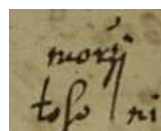 morij
toso ni